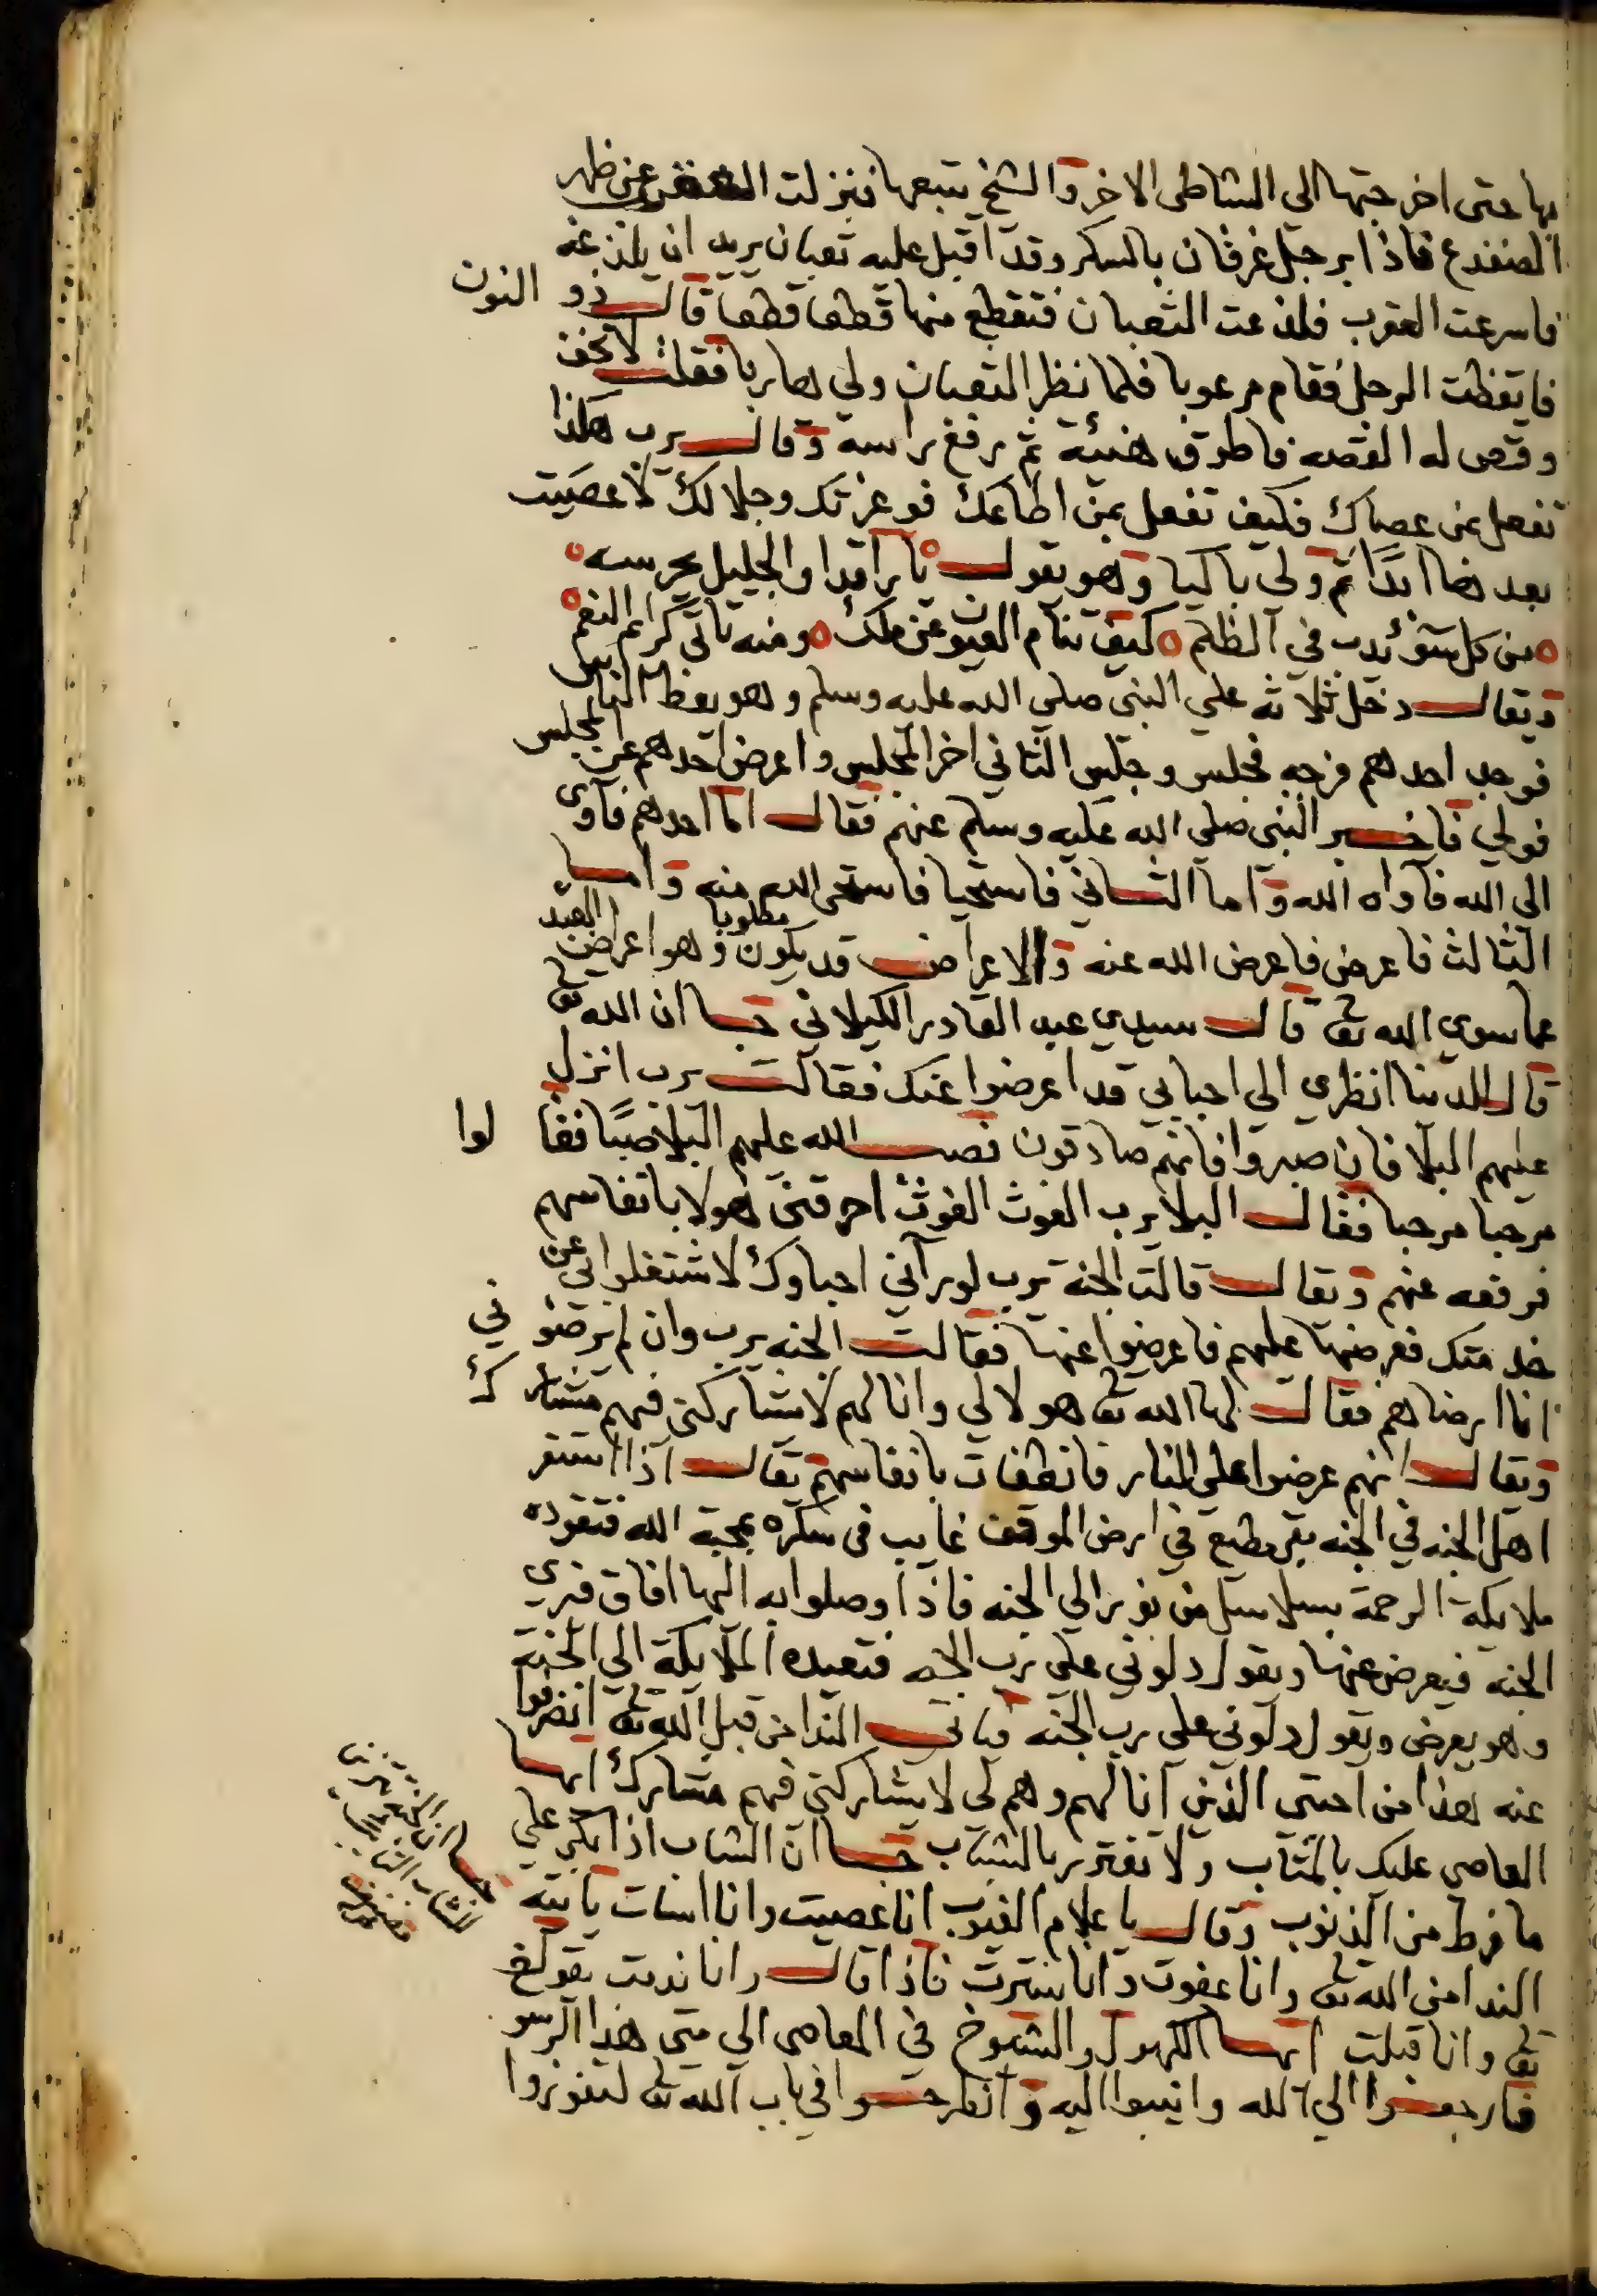 بها حتى اخرجتها الي الشاطى الاخر والشيخ يتبعها فنزلت العقرب عن ظهر
الضفدع فاذا برجل غرقان بالسكر وقد اقبل عليه ثعبان يريد ان يلذغه
فاسرعت العقرب فلذعت الثعبان فتقطع منها قطعا قطعا قال ذو النون
فايقظت الرجل فقام مرعوبا فلما نظر الثعبان ولي هاربا فقلت لا تخف
وقص له القصه فاطرق هنئة ثم رفع راسه وقال يرب هكذا
تفعل بمن عصاك فكيف تفعل بمن اطاعك فوعزتك وجلالك لا عصيت
بعد هذا ابدًا ثم ولى باكيا وهو يقول يا راقدا والجليل يحرسه
من كل سوٍ يدب في الظلم كيف تنام العيون عن ملك ومنه تاتي كرائم النعم
ويقال دخل ثلاثه على النبي صلى الله عليه وسلم وهو يعظ الناس
فوجد احدهم فرجه فجلس وجلس الثاني اخر المجلس واعرض احدهم عن المجلس
فولي فاخبر النبي صلى الله عليه وسلم عنهم فقال اما احدهم فآوى
الى الله فآواه الله واما الثاني فاستحيا فاستحى الله منه واما
الثالث فاعرض فاعرض الله عنه والاعراض قد يكون مطلوبا وهو اعراض العبد
عما سوى الله تعا قال سيدي عبد القادر الكيلاني جا ان الله تعا
قال للدنيا انظري الى احبابي قد اعرضوا عنك فقالت يرب انزل
عليهم البلا فان صبروا فانهم صادقون فصب الله عليهم البلا صبًا فقالوا
مرحبا مرحبا فقال البلا يرب الغوث الغوث احرقني هولا بانفاسهم
فرفعه عنهم ويقال قالت الجنة يرب لو رآني احباوك لاشتغلوا بي عن
خدمتك فعرضها عليهم فاعرضوا عنها فقالت الجنه يرب وان لم يرضوني
انا ارضاهم فقال لها الله تعا هولا لي وانا لهم لا يشاركني فيهم مشارك
ويقال انهم عرضوا على النار فانطفات بانفاسهم يقال اذا استقر
اهل الجنه في الجنه بقى مطيع في ارض الموقف غايب في سكره بمحبة الله فتقوده
ملايكة الرحمة بسلاسل من نور الي الجنه فاذا وصلوا به اليها افاق فيري
الجنه فيعرض عنها ويقول دلوني على رب الجنه فتعيده الملايكة الي الجنة
وهو يعرض ويقول دلوني على رب الجنه فياتي الندا من قبل الله تعا انصرفوا
عنه هذا من احبتي الذين انا لهم وهم لى لا يشاركني فيهم مشارك ايها
العاصى عليك بالمتاب ولا تغترر بالشباب جا ان الشاب اذا بكى علي
ما فرط من الذنوب وقال يا علام الغيوب انا عصيت وانا اسات ياتيه
الندا من الله تعا وانا عفوت وانا سترت فاذا قال وانا ندمت يقول
تعا وانا قبلت ايها الكهول والشيوخ في المعاصى الي متى هذا الرسو
فارجعوا الي الله وانيبوا اليه وانطرحوا في باب الله تعا لتفوزوا